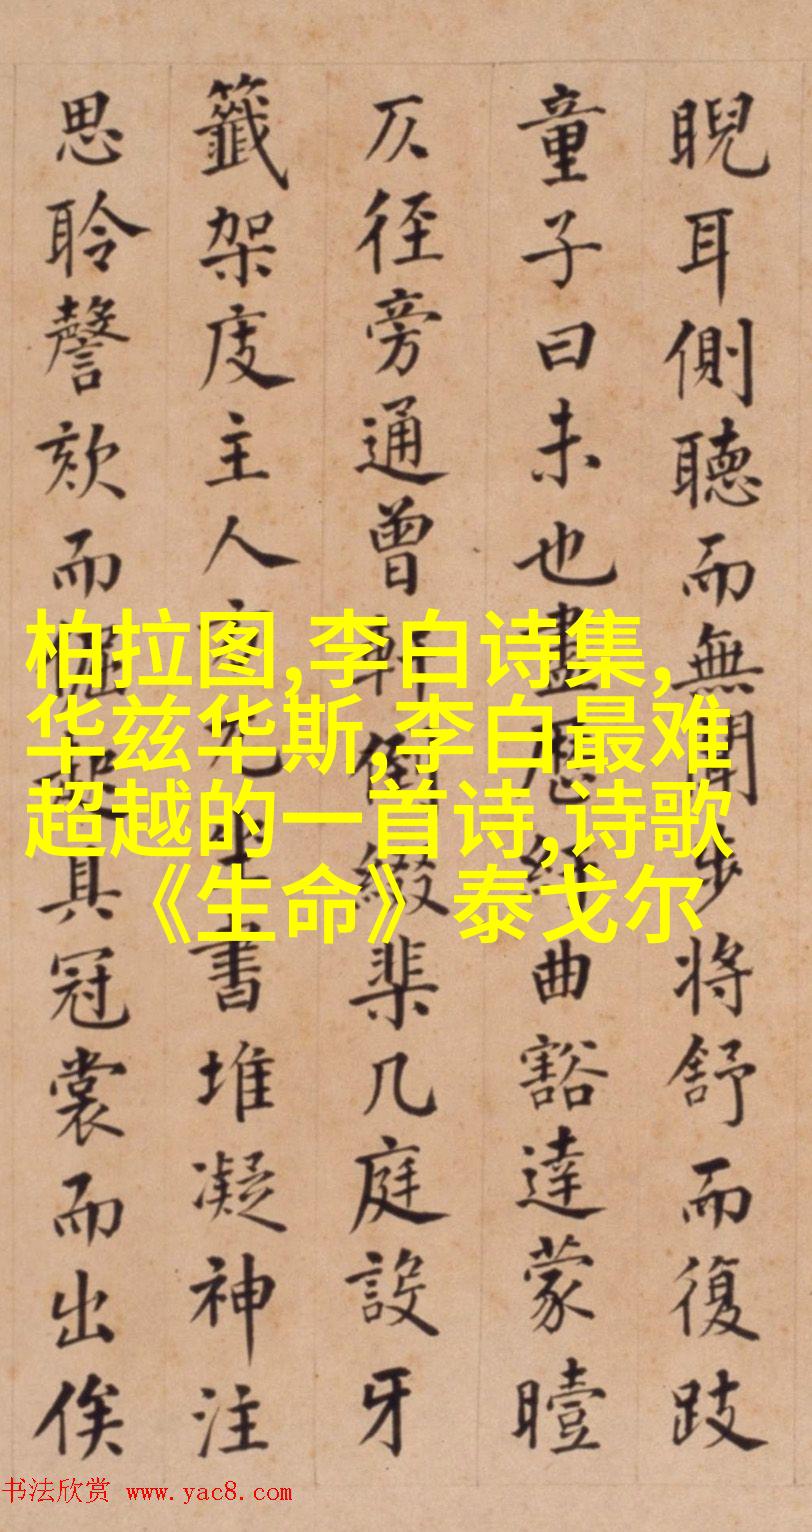 睨耳側聽而無聞步將舒而復跂
童子曰未也盡歷曲豁達蒙曀
仄徑旁通曾軒綴棐几庭設牙
籤架庋主人方兀坐書堆凝神注
思聆謦欬而起具冠裳而出俟
柏拉图,李白诗集,
华兹华斯,李白最难
超越的一首诗,诗歌
《生命》泰戈尔
书法欣赏 www.yac8.com